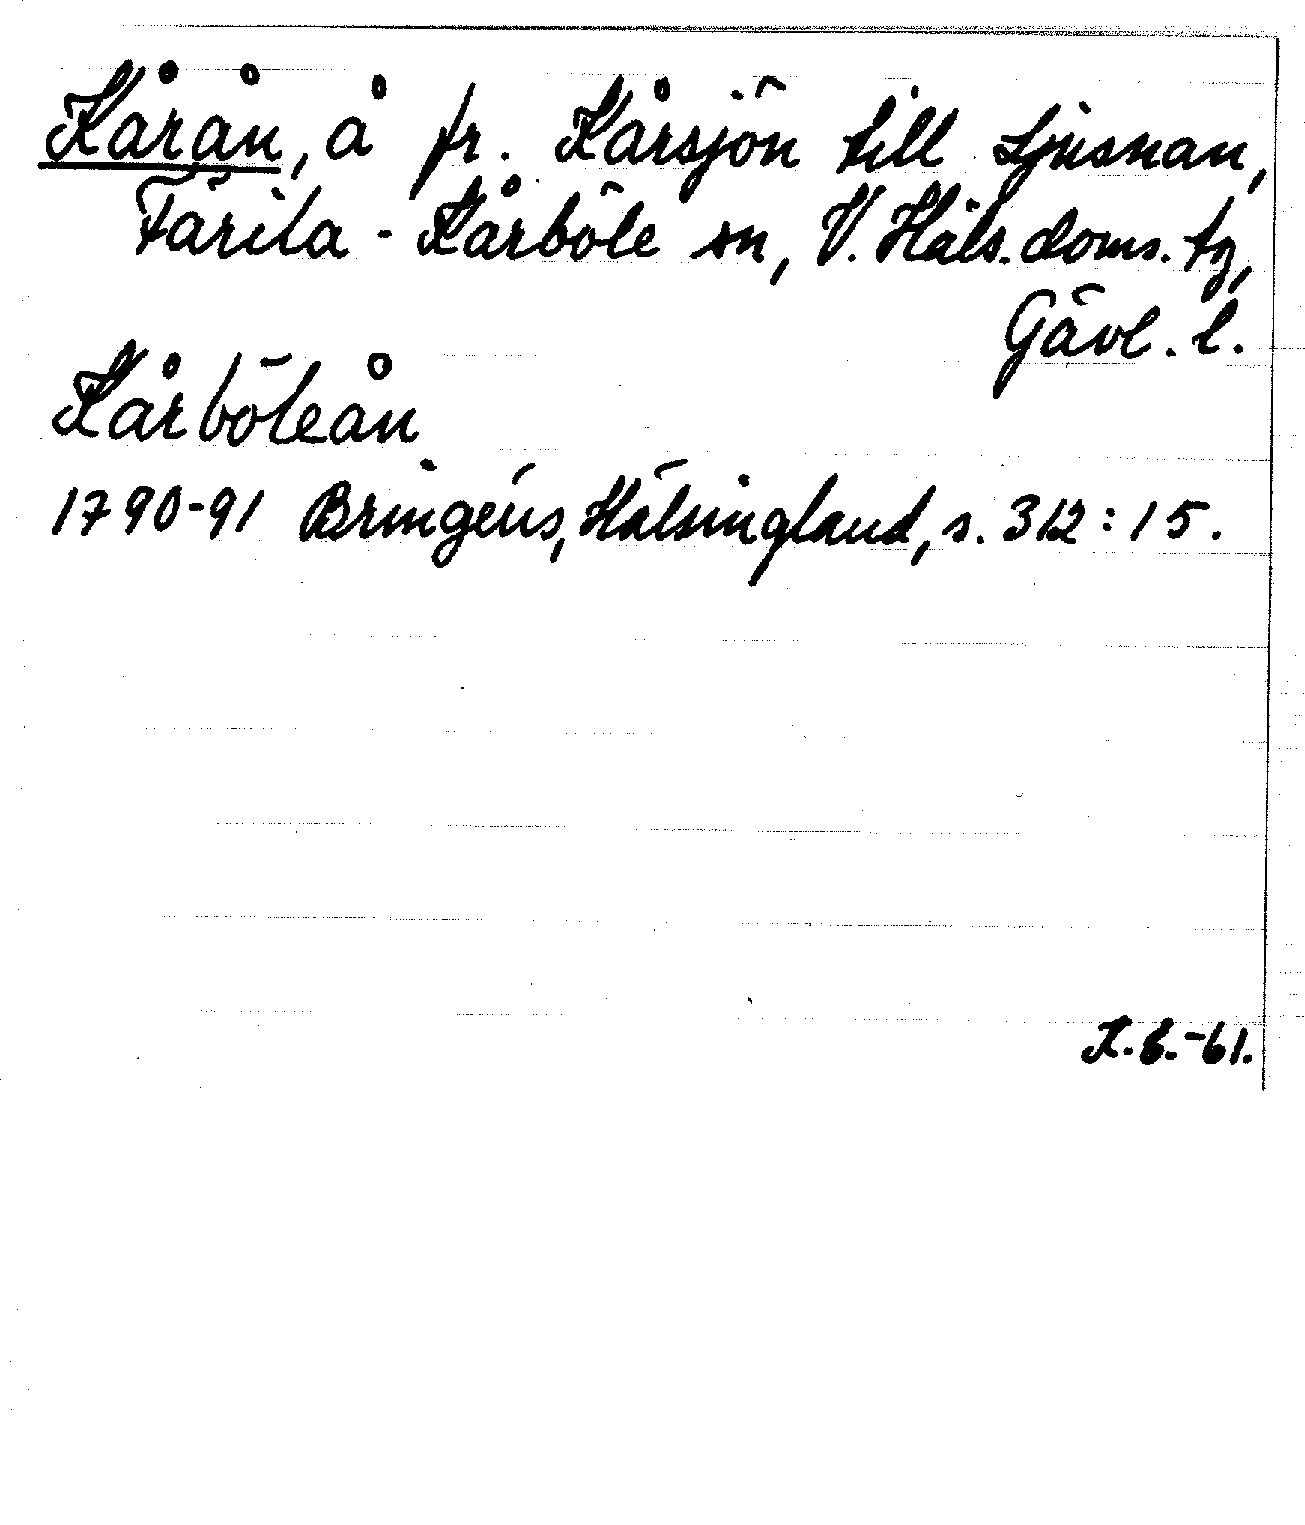 Kårån, å fr. Kårsjön till Ljusnan,
Färila - Kårböle sn, V. Häls. doms. tg,
Gävl. l.
Kårböleån
1790-91 Bringéus, Hälsingland, s. 312:15.
K.B.-61.